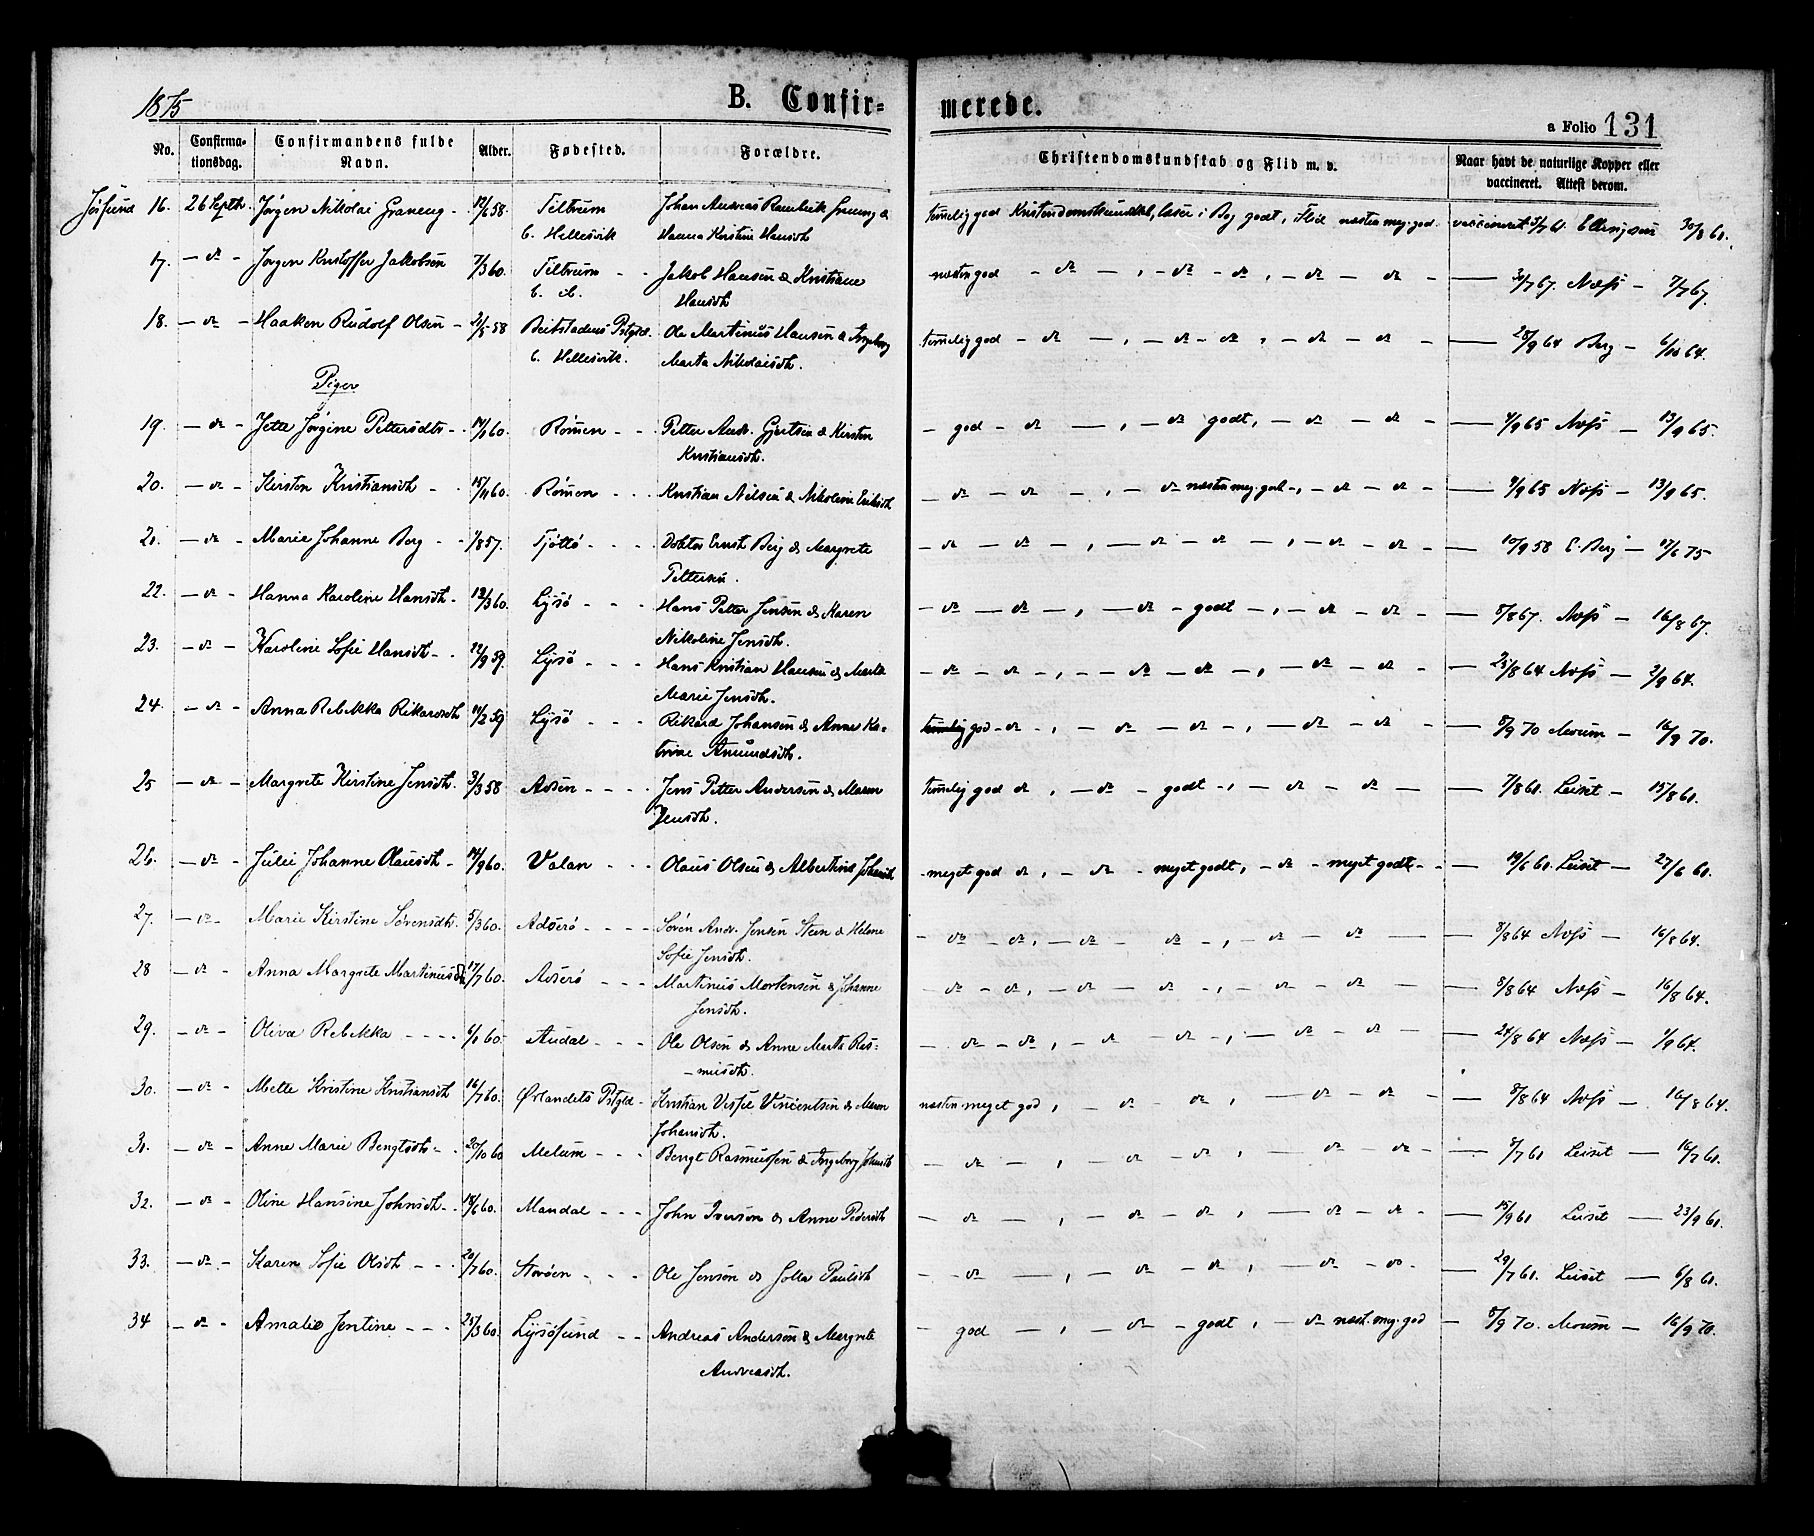 1875
B. Confir-
merede.
a Folio 131
No.
Confirma-
tionsdag.
Confirmandens fulde
Navn.
Alder.
Fødested.
Forældre.
Christendomskundskab og Flid m. v.
Naar havt de naturlige Kopper eller
vaccineret. Attest derom.
Jøsund 16. 26 Septb. Jørgen Nikolai 12/6 58. Johan Andreas & temelig god Kristendomskundskab, læser i Bog godt, Flid næsten meg. god. vaccineret 61. Ellingsen 30/8 61.
b. Hellesvik Hanna Kirstine Hansdt.
17. — do — Jørgen Kristoffer Jakobsen 7/3 60. Jakob Hansen & Kristiane næsten god — do —, — do — do, — do — do — 30/7 67. Næss — 7/7 67.
b. do. Hansdt.
18. — do — Haaken Rudolf Olsen 58 Beitstadens Pstgld. Ole Martinus Hansen & Ingeborg temelig god — do —, — do — do, — do — do — 28/9 64 Berg — 6/10 64.
b. Hellesvik. Marta Nikolaisdt.
Piger
19. — do — Jette Jørgine Pettersdtr. 60. Rømen — Petter Andr. Gjertsen & Kirsten — god — do —, — do godt, — do — do — 9/9 65 Næss — 13/9 65.
Kristiansdt.
20. — do — Kirsten Kristiansdt 15/11 60. Rømen — Kristian Nilsen & Nikoline Eriksdt — do — do —, — do næsten meg. godt —, — do — do — 9/9 65 Næss — 13/9 65.
21. — do — Marie Johanne Berg 1/8 57. Tjøttø — Doktor Ernst Berg & Margrete — do — do —, — do — do —, — do — do — 10/9 58 E. Berg — 17/6 75
Pettersen.
22. — do — Hanna Karoline Hansdt 12/3 60. Lysø — Hans Petter Jensen & Karen — do — do —, — do — godt —, — do — do — 8/8 67. Næss — 16/8 67.
Nikoline Jensdt.
23. — do — Karoline Sofie Hansdt 22/9 59. Lysø — Hans Kristian Hansen & Marta — do — do —, — do — do —, — do — do — 25/8 64 Næss — 2/9 64.
Marie Jensdt.
24. — do — Anna Rebekka Rikardsdt 11/2 59 Lysø — Rikard Johansen & Anne Ka- temelig god — do —, — do — do —, — do — do — 8/9 70 Moum — 16/9 70.
trine Amundsdt.
25 — do — Margrete Kirstine Jensdt. 3/3 58 Adsen — Jens Petter Andersen & Maren temelig god do, — do — godt —, — do — do — 7/8 61. Leiset — 15/8 61.
Jensdt.
26. — do — Julie Johanne Olausdt 14/9 60. Valan — Olaus Olsen & Albertine Johansdt — meget god do, — do — meget godt, — do — meget godt — 19/6 61. Leiset — 27/6 61.
27. — do — Marie Kirstine Sørensdt. 5/3 60. Adserø — Søren Andr. Jensen Steen & Helene — do — do, — do — do —, — do — do — 8/8 64 Næss — 16/8 64.
Sofie Jensdt.
28 — do — Anna Margrete Martinusdt 17/7 60. Adserø — Martinus Mortensen & Johanne — do — do, — do — do —, — do — do — 8/8 64 Næss — 16/8 64.
Jensdt.
29. — do — Oliva Rebekka 6/1 60. Audal — Ole Olsen & Anne Marta Ras- — do — do, — do — do —, — do — do — 24/8 64 Næss — 1/9 64.
musdt.
30. — do — Mette Kristine Kristiansdt 16/7 60. Ørlandets Pstgld — Kristian Vessel Vincentsen & Maren næsten meget god, — do — do, — do — do — 8/8 64 Næss — 16/8 64.
Johansdt.
31. — do — Anne Marie Bengtsdt 20/10 60 Melum — Bengt Rasmussen & Ingeborg Johnsdt — do —, — do — do, — do — do — 8/7 61 Leiset — 16/7 61.
32. — do — Oline Hansine Johnsdt 18/6 60. Mandal — John Iversen & Anne Pedersdt — do —, — do — do, — do — do — 15/9 61 Leiset — 23/9 61.
33. — do — Karen Sofie Olsdt 20/7 60. Storøen — Ole Jensen & Golla Paulsdt — do —, — do — do, — do — do — 29/7 61. Leiset — 6/8 61.
34 — do — Amalie Jentine 25/3 60. Lysøsund — Andreas Andersen & Margrete — god —, — do — godt, — do næst. meg. god — 8/9 70. Moum — 16/9 70.
Andreasdt.